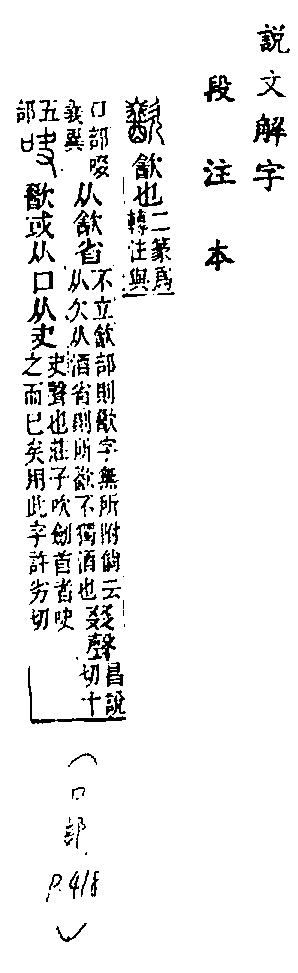 說文解字
段注本
歠 㱃也 二篆爲
轉注與
口部啜
義異 从㱃省 不立㱃部則歠字無所附倘云
从欠从酒省則所歠不獨酒也 叕聲 昌說
切十
五
部 吷 歠或从口从夬 夬聲也莊子吹劍首者吷
之而已矣用此字許劣切
(口部 P.418)